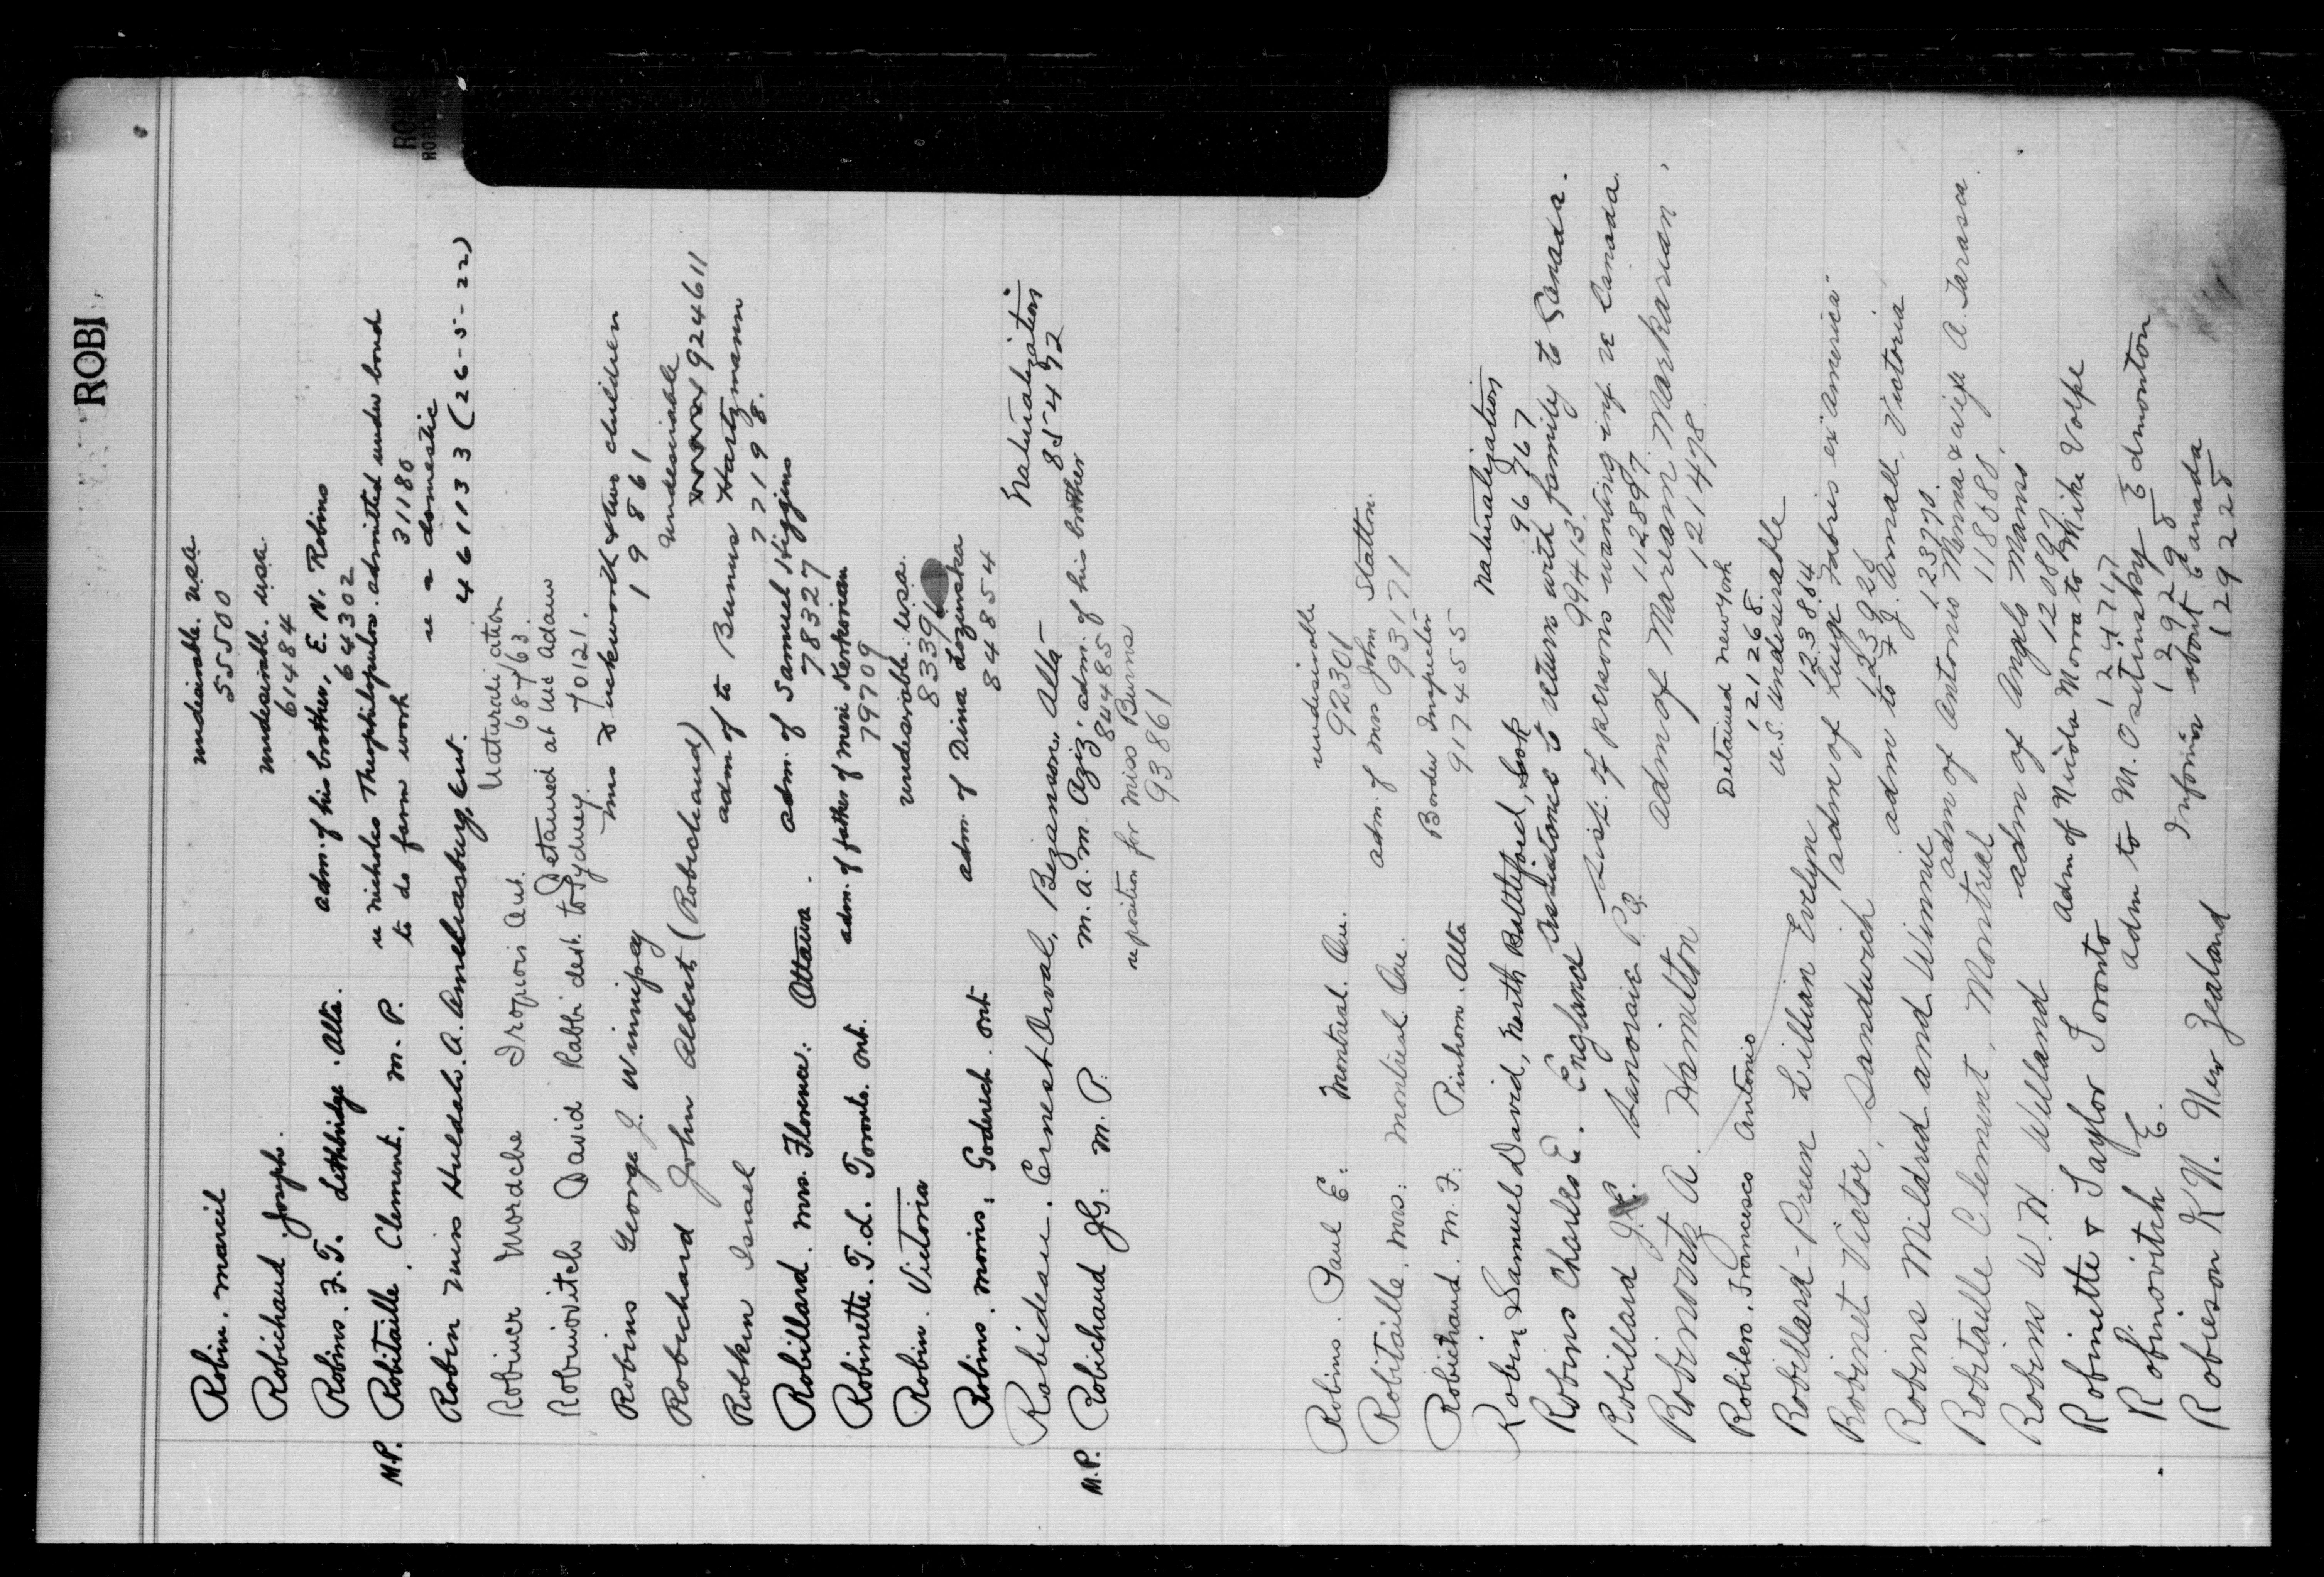 ROBI
Robin. Marcil undesirable. usa
55500
Robichaud Joseph. undesirable. usa.
61484
Robins. F. T. Lethbridge. Alta. adm. of his brother, E. N. Robins
64302
M.P. Robitaille. Clement. M. P. re Nicholas admitted under bond
to do farm work 31180
re a domestic
Robin Miss Huldah. A. Ameliasburg, Ont. 461133 (26-5-22)
Robiner Mordche Iroquois Ont. Naturalization
68763.
Robinovitch David Rabbi dest. to Sydney. Detained at
70121.
Robins George J. Winnipeg Mrs Duckworth & two children
19861
Robichard John Albert (Robichaud) Undesirable
924611
Robkin Israel adm of to Bunus Hartzmann
77198.
Robillard. Mrs. Florence: Ottawa. adm. of Samuel Higgins
78327
Robinette. T. L. Toronto. Ont. adm. of father of Kerkorian
79709
Robin. Victoria undesirable. usa.
83391
Robins. Morris. Goderich. Ont adm. of Dina Lozinska
84854
Robideau. Ernest Orval, Bezanson, Alta- Naturalization
85492
M.P. Robichaud J.G. M. P. M. A. M. Aziz' adm. of his brother
84485
re position for Miss Burns
93861
Robins. Paul E. Montreal. Que. undesirable
92301
Robitaille. Mrs: Montreal. Que. adm. of Mrs John Statton.
93171
Robichaud. M. F. Pinhorn. Alta Border Inspector
917455
Robin, Samuel David, North Battleford, Sask Naturalization
96767
Robins Charles E. England assistance to return with family to Canada.
99413
Robillard J. Lanoraie P.Q. List of persons wanting inf re Canada.
112897
Robinovitz A. Hamilton adm of Mariam Markarian.
121478
Robibero. Francesco Antonio Detained New York
121268.
Robillard-Preen Lillian Evelyn U.S. Undesirable
123864
Robinet Victor, Sandwich adm of Luigi Fabris ex America
123928
Robins Mildred and Winnie adm to F J. Arnall, Victoria
123770.
Robitaille Clement, Montreal adm of Antonio Menna & wife A. Tarasca.
118688
Robins W. H. Welland adm of Angelo Manns
Robinette & Taylor Toronto adm of Nicola Morra to Mike Volpe
Robinovitch E. adm to M. Ositinsky Edmonton
129298
Robieson K N. New Zealand Informa about Canada
129228